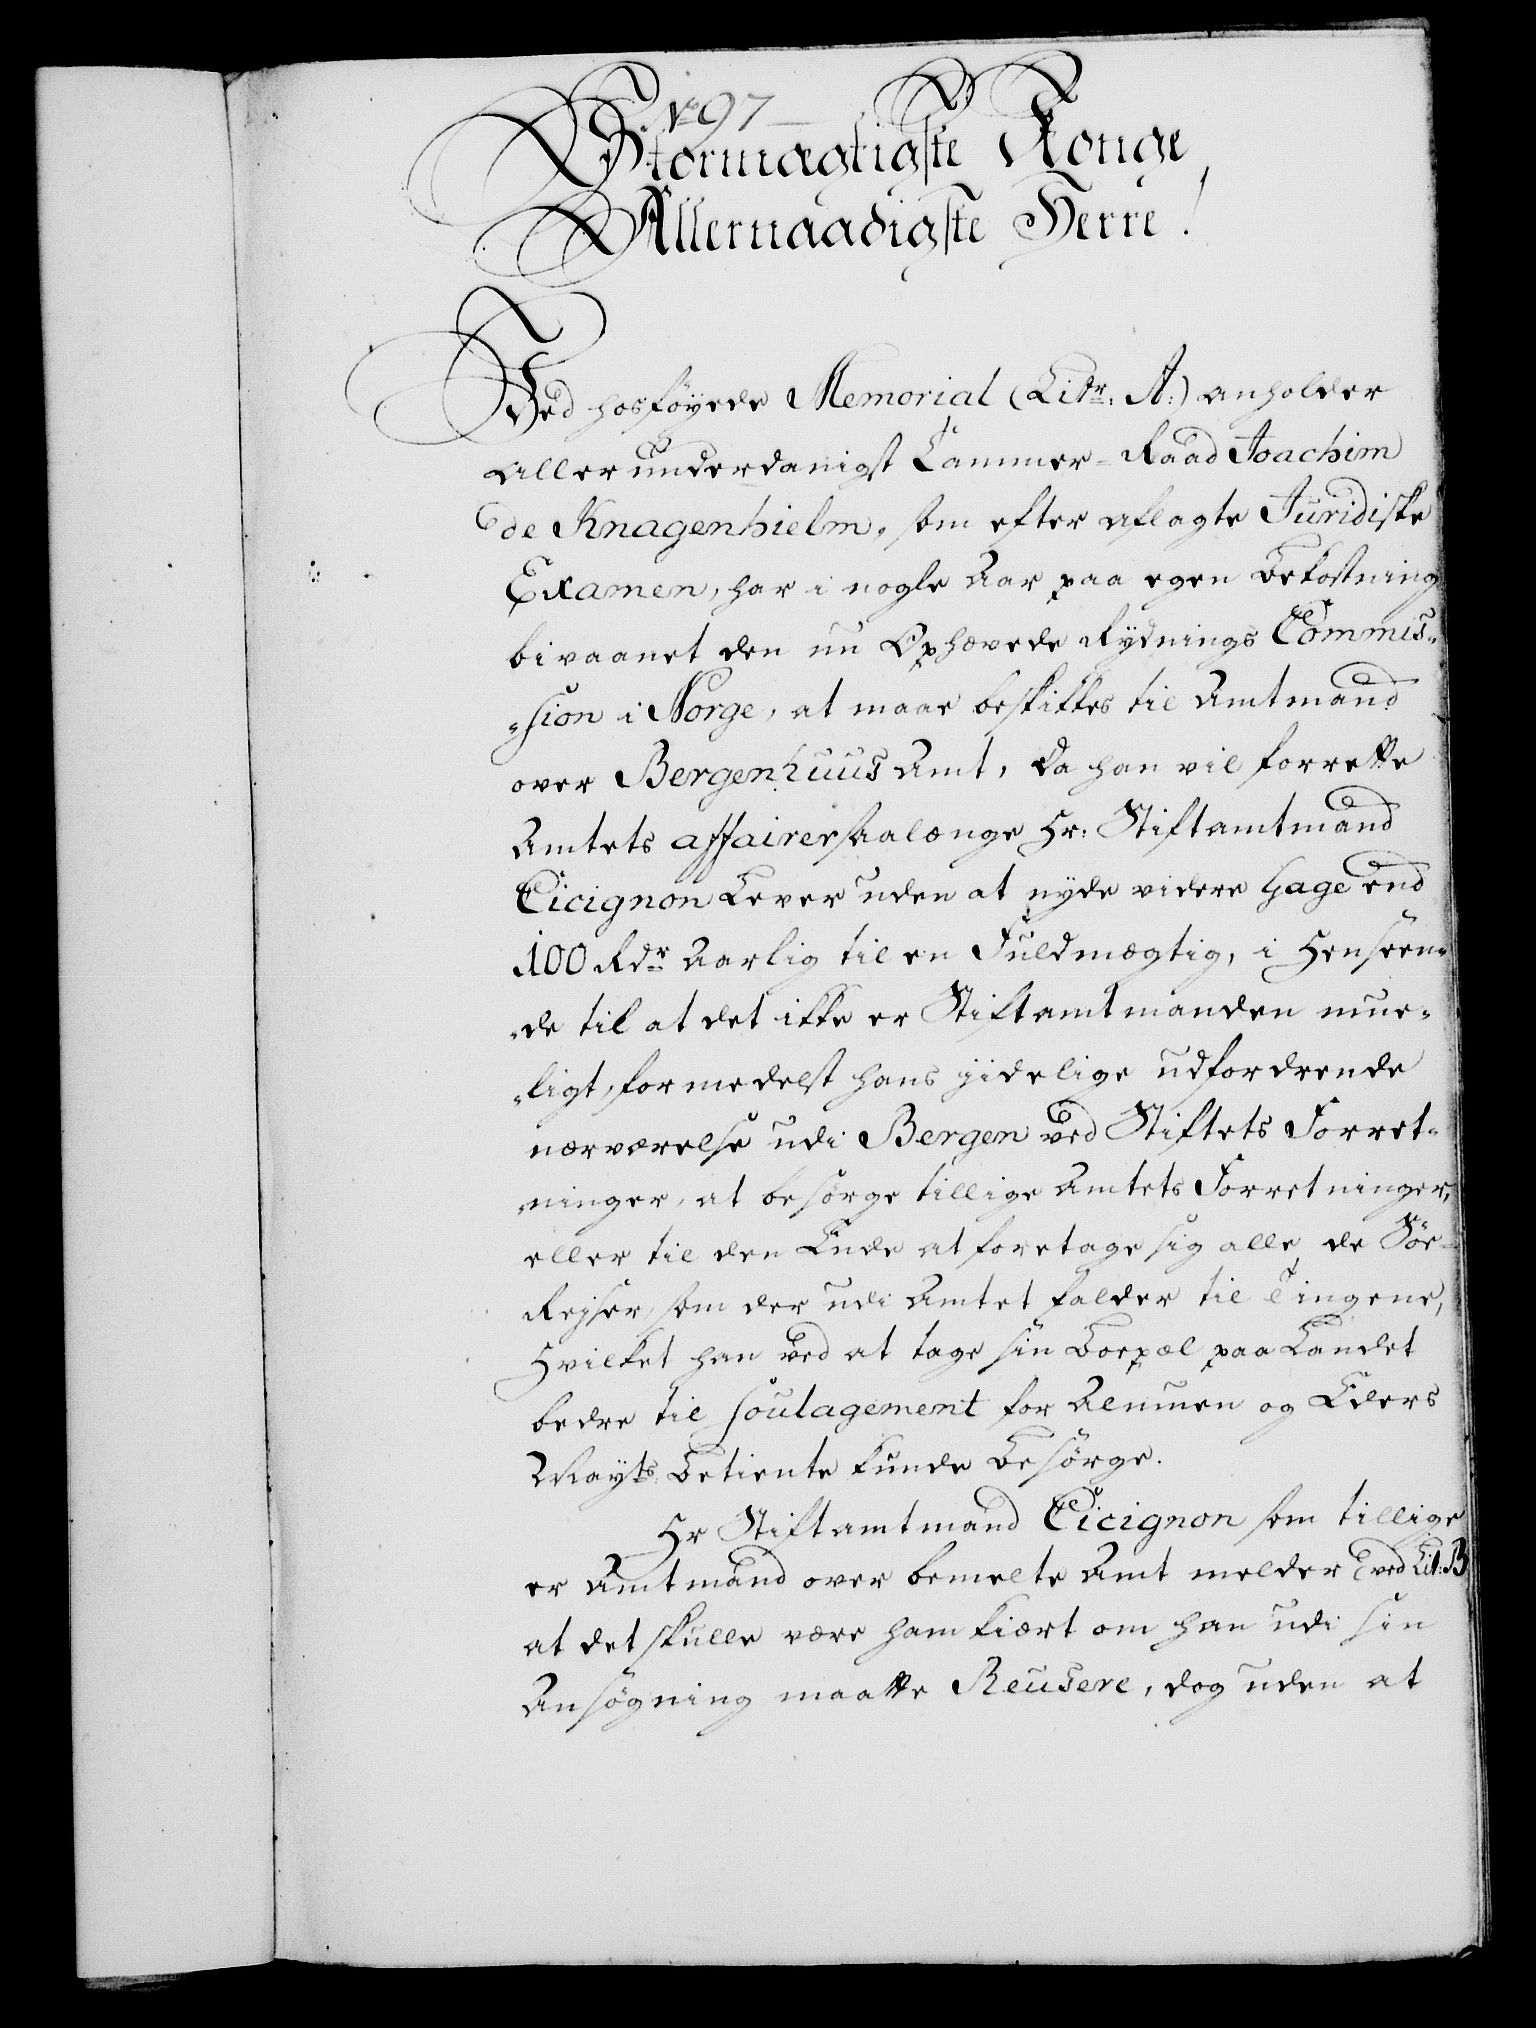 No 97
Stormægtigste Konge,
Allernaadigste Herre!
Ved hosföyede Memorial (Litr: A:) anholder
allerunderdanigst Cammer-Raad Joachim
de Knagenhielm, som efter aflagte Juridiske
Examen, har i nogle Aar paa egen Bekostning
bivaanet den nu Ophævede Rydnings Commis-
-sion i Norge, at maae beskikkes til Amtmand
over Bergenhuus Amt, da han vil forrette
Amtets affairer saalænge Hr: Stiftamtmand
Cicignon Lever uden at nyde videre Gage end
100 Rdr Aarlig til en Fuldmægtig, i Henseen-
-de til at det ikke er Stiftamtmanden mue-
-ligt, formedelst hans jidelige udfordrende
nærværelse udi Bergen ved Stiftets Forret-
-ninger, at besörge tillige Amtets Forretninger,
eller til den Ende at foretage sig alle de Söe-
Rejser, som der udi Amtet falder til Tingene,
Hvilket han ved at tage sin Boepæl paa Landet
bedre til Soulagement for Almuen og Eders
Mayts Betiente kunde Besörge.
Hr Stiftamtmand Cicignon som tillige
er Amtmand over bemelte Amt melder ved Lit: B
at det skulle være ham kiært om han udi sin
Ansögning maatte Reusere, dog uden at